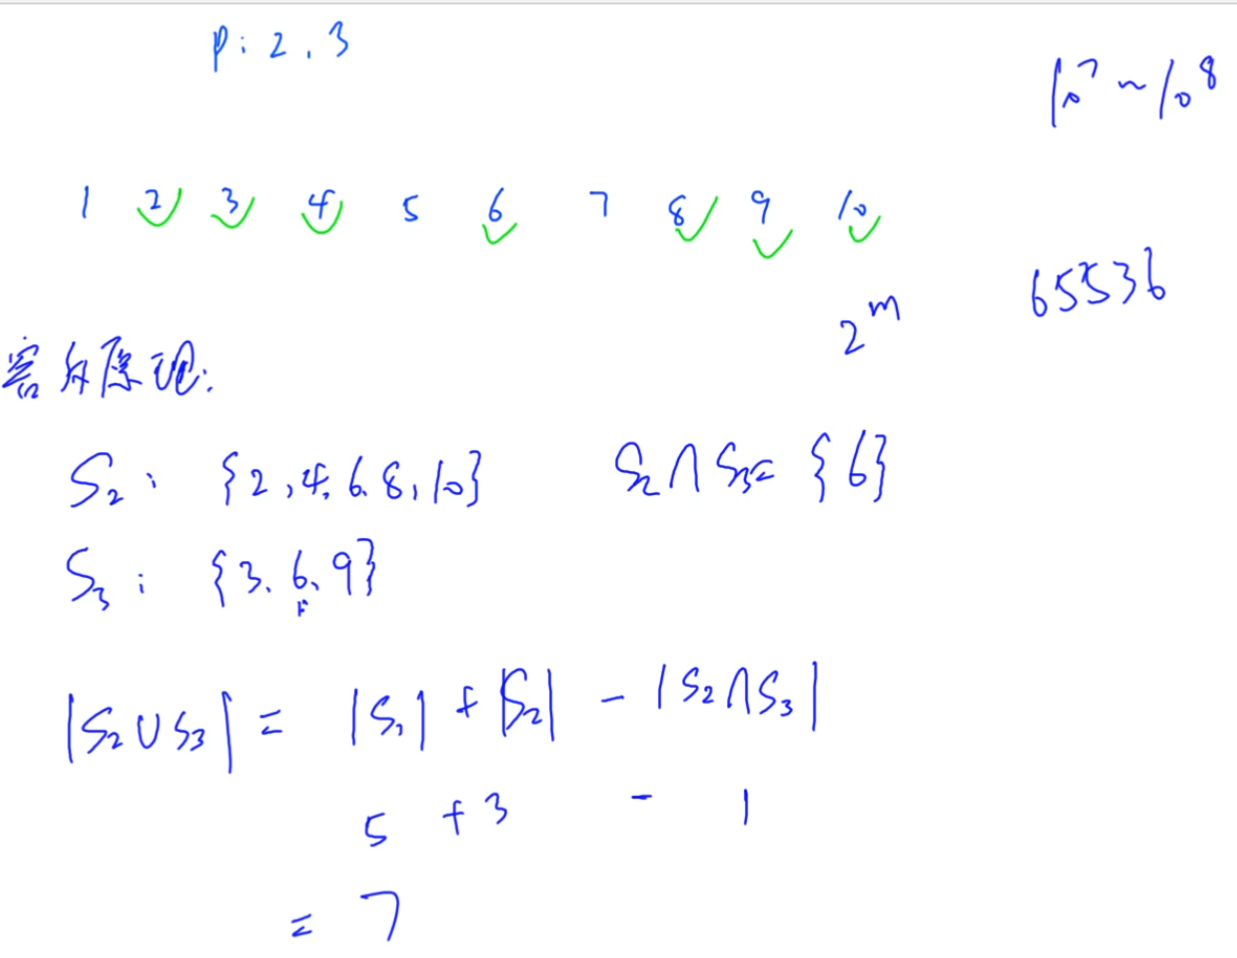 p: 2, 3
10^7 ~ 10^8
1 2 3 4 5 6 7 8 9 10
2^m 65536
容斥原理:
S_2: {2, 4, 6, 8, 10} S_2∩S_3= {6}
S_3: {3, 6, 9}
|S_2∪S_3| = |S_1| + |S_2| - |S_2∩S_3|
5 + 3 - 1
= 7